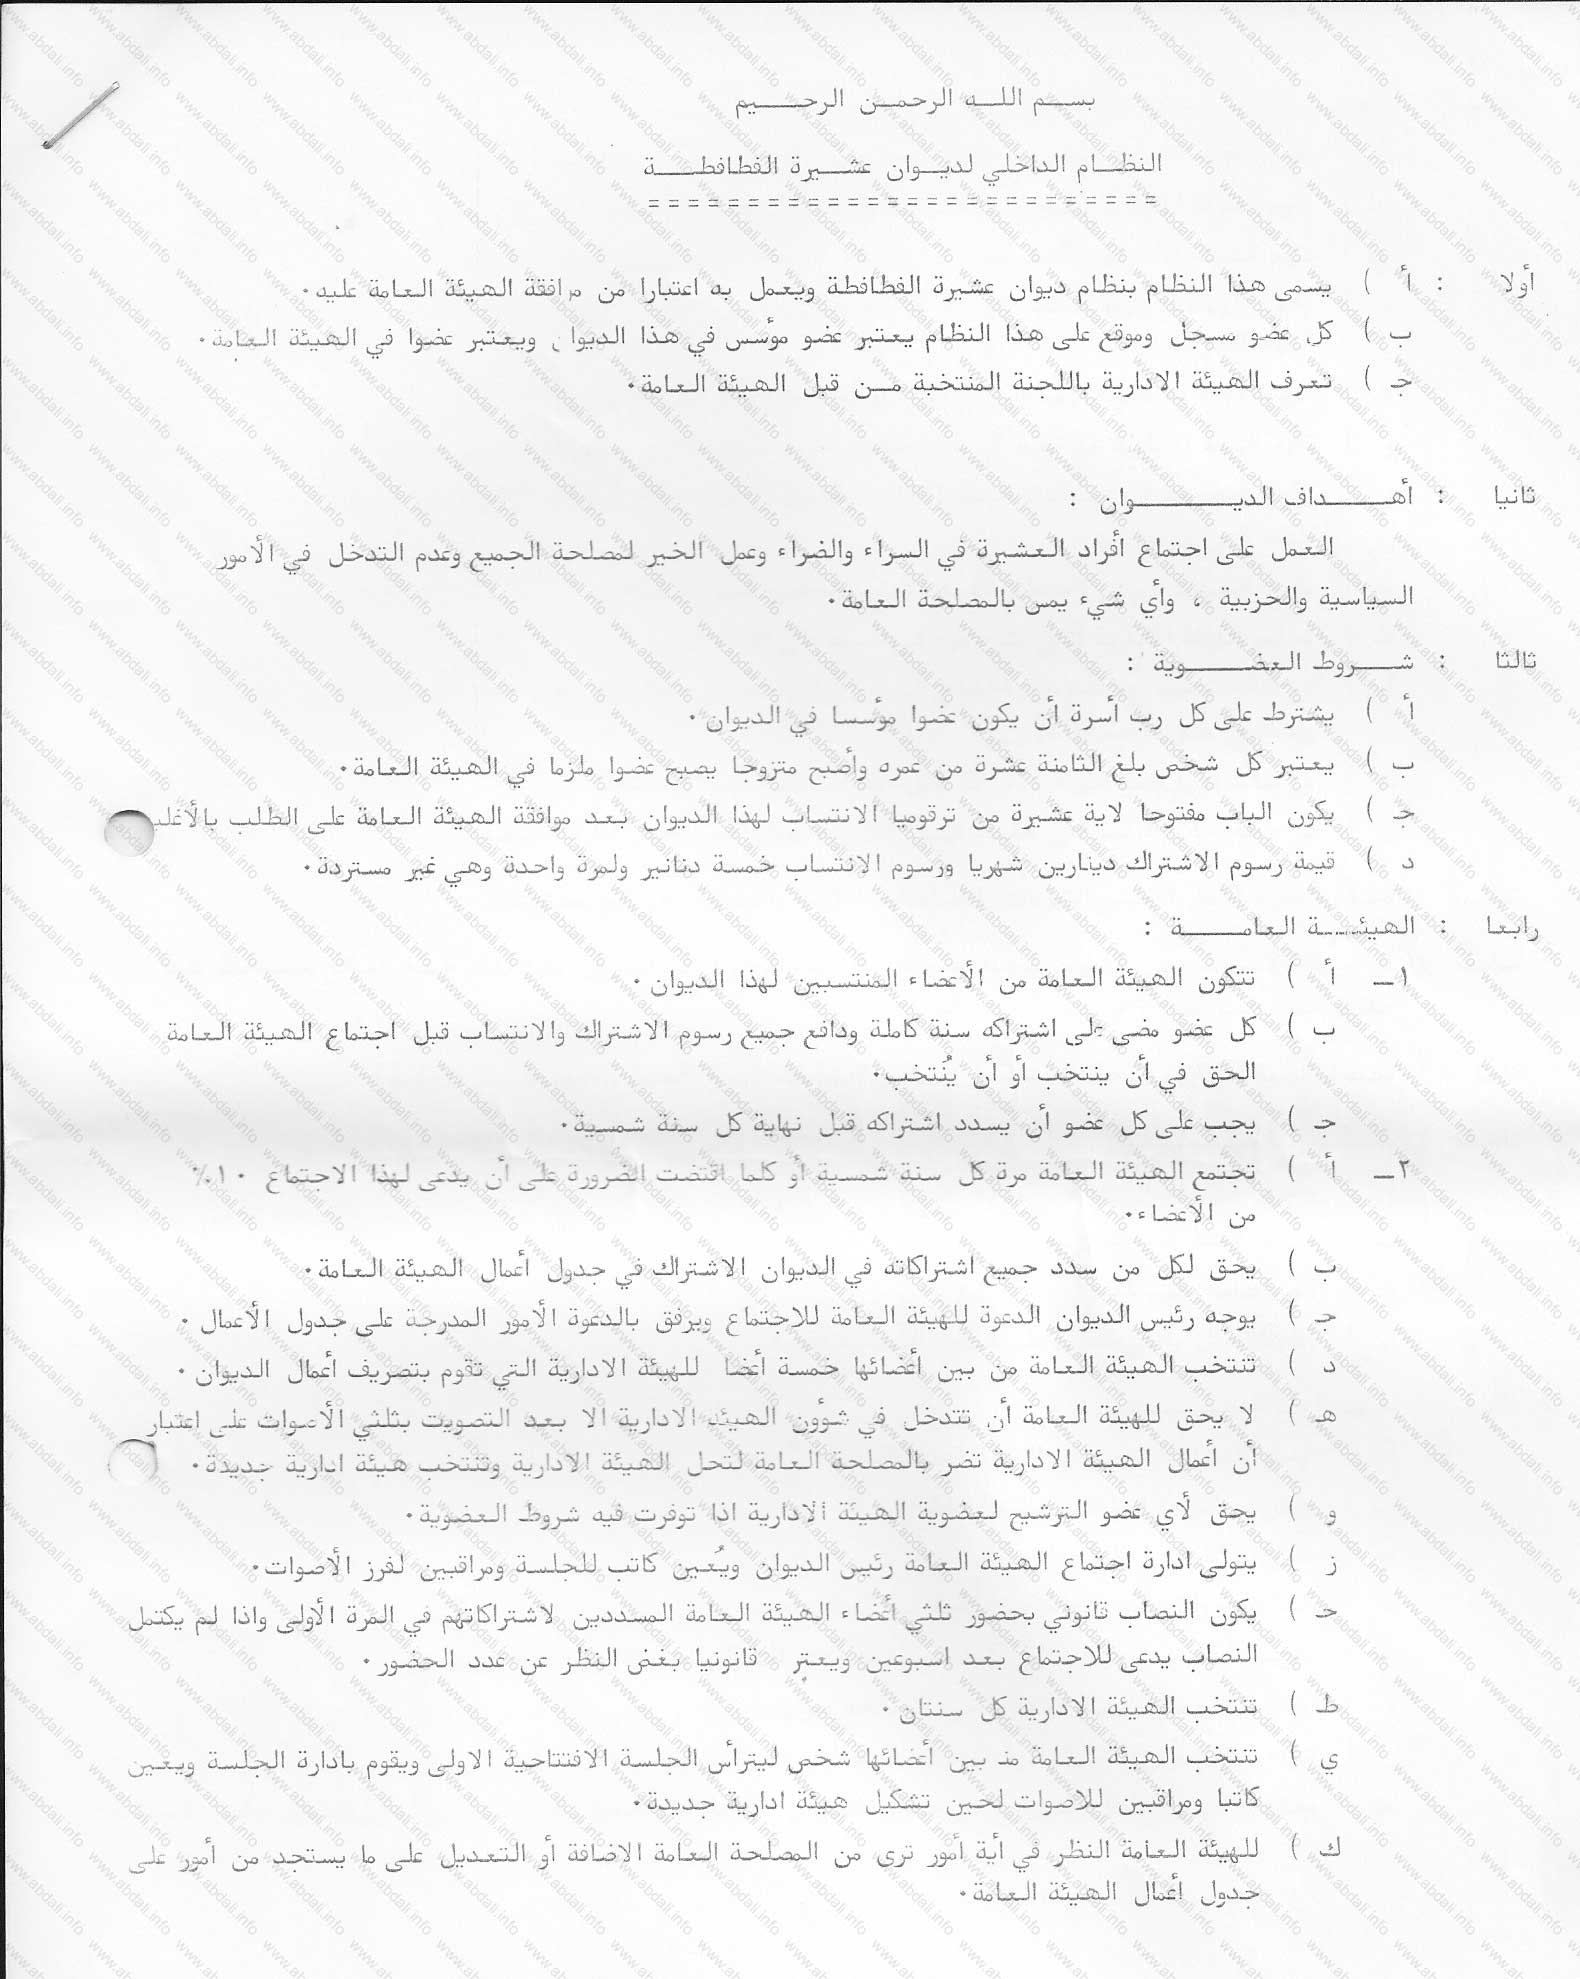 بسم الله الرحمن الرحيم
النظام الداخلي لديوان عشيرة الفطافطة
==========================
أولا : أ ) يسمى هذا النظام بنظام ديوان عشيرة الفطافطة ويعمل به اعتبارا من مرافقة الهيئة العامة عليه.
ب ) كل عضو مسجل وموقع على هذا النظام يعتبر عضو مؤسس في هذا الديوان ويعتبر عضوا في الهيئة العامة.
جـ ) تعرف الهيئة الادارية باللجنة المنتخبة من قبل الهيئة العامة.
ثانيا : أهداف الديوان :
العمل على اجتماع أفراد العشيرة في السراء والضراء وعمل الخير لمصلحة الجميع وعدم التدخل في الأمور
السياسية والحزبية ، وأي شيء يمس بالمصلحة العامة.
ثالثا : شروط العضوية :
أ ) يشترط على كل رب أسرة أن يكون عضوا مؤسسا في الديوان.
ب ) يعتبر كل شخص بلغ الثامنة عشرة من عمره وأصبح متزوجا يصبح عضوا ملزما في الهيئة العامة.
جـ ) يكون الباب مفتوحا لاية عشيرة من ترقوميا الانتساب لهذا الديوان بعد موافقة الهيئة العامة على الطلب
د ) قيمة رسوم الاشتراك دينارين شهريا ورسوم الانتساب خمسة دنانير ولمرة واحدة وهي غير مستردة.
رابعا : الهيئة العامة :
١ـ أ ) تتكون الهيئة العامة من الأعضاء المنتسبين لهذا الديوان.
ب ) كل عضو مضى على اشتراكه سنة كاملة ودافع جميع رسوم الاشتراك والانتساب قبل اجتماع الهيئة العامة
الحق في أن ينتخب أو أن يُنتخب.
جـ ) يجب على كل عضو أن يسدد اشتراكه قبل نهاية كل سنة شمسية.
٢ـ أ ) تجتمع الهيئة العامة مرة كل سنة شمسية أو كلما اقتضت الضرورة على أن يدعى لهذا الاجتماع ١٠٪
من الأعضاء.
ب ) يحق لكل من سدد جميع اشتراكاته في الديوان الاشتراك في جدول أعمال الهيئة العامة.
جـ ) يوجه رئيس الديوان الدعوة للهيئة العامة للاجتماع ويرفق بالدعوة الأمور المدرجة على جدول الأعمال.
د ) تنتخب الهيئة العامة من بين أعضائها خمسة أعضا للهيئة الادارية التي تقوم بتصريف أعمال الديوان.
هـ ) لا يحق للهيئة العامة أن تتدخل في شؤون الهيئة الادارية الا بعد التصويت بثلثي الأصوات على اعتبار
أن أعمال الهيئة الادارية تضر بالمصلحة العامة لتحل الهيئة الادارية وتنتخب هيئة ادارية جديدة.
و ) يحق لأي عضو الترشيح لعضوية الهيئة الادارية اذا توفرت فيه شروط العضوية.
ز ) يتولى ادارة اجتماع الهيئة العامة رئيس الديوان ويُعين كاتب للجلسة ومراقبين لفرز الأصوات.
حـ ) يكون النصاب قانوني بحضور ثلثي أعضاء الهيئة العامة المسددين لاشتراكاتهم في المرة الأولى واذا لم يكتمل
النصاب يدعى للاجتماع بعد اسبوعين ويعتبر قانونيا بغض النظر عن عدد الحضور.
ط ) تنتخب الهيئة الادارية كل سنتان.
ي ) تنتخب الهيئة العامة من بين أعضائها شخص ليترأس الجلسة الافتتاحية الاولى ويقوم بادارة الجلسة ويعين
كاتبا ومراقبين للاصوات لحين تشكيل هيئة ادارية جديدة.
ك ) للهيئة العامة النظر في أية أمور ترى من المصلحة العامة الاضافة أو التعديل على ما يستجد من أمور على
جدول أعمال الهيئة العامة.